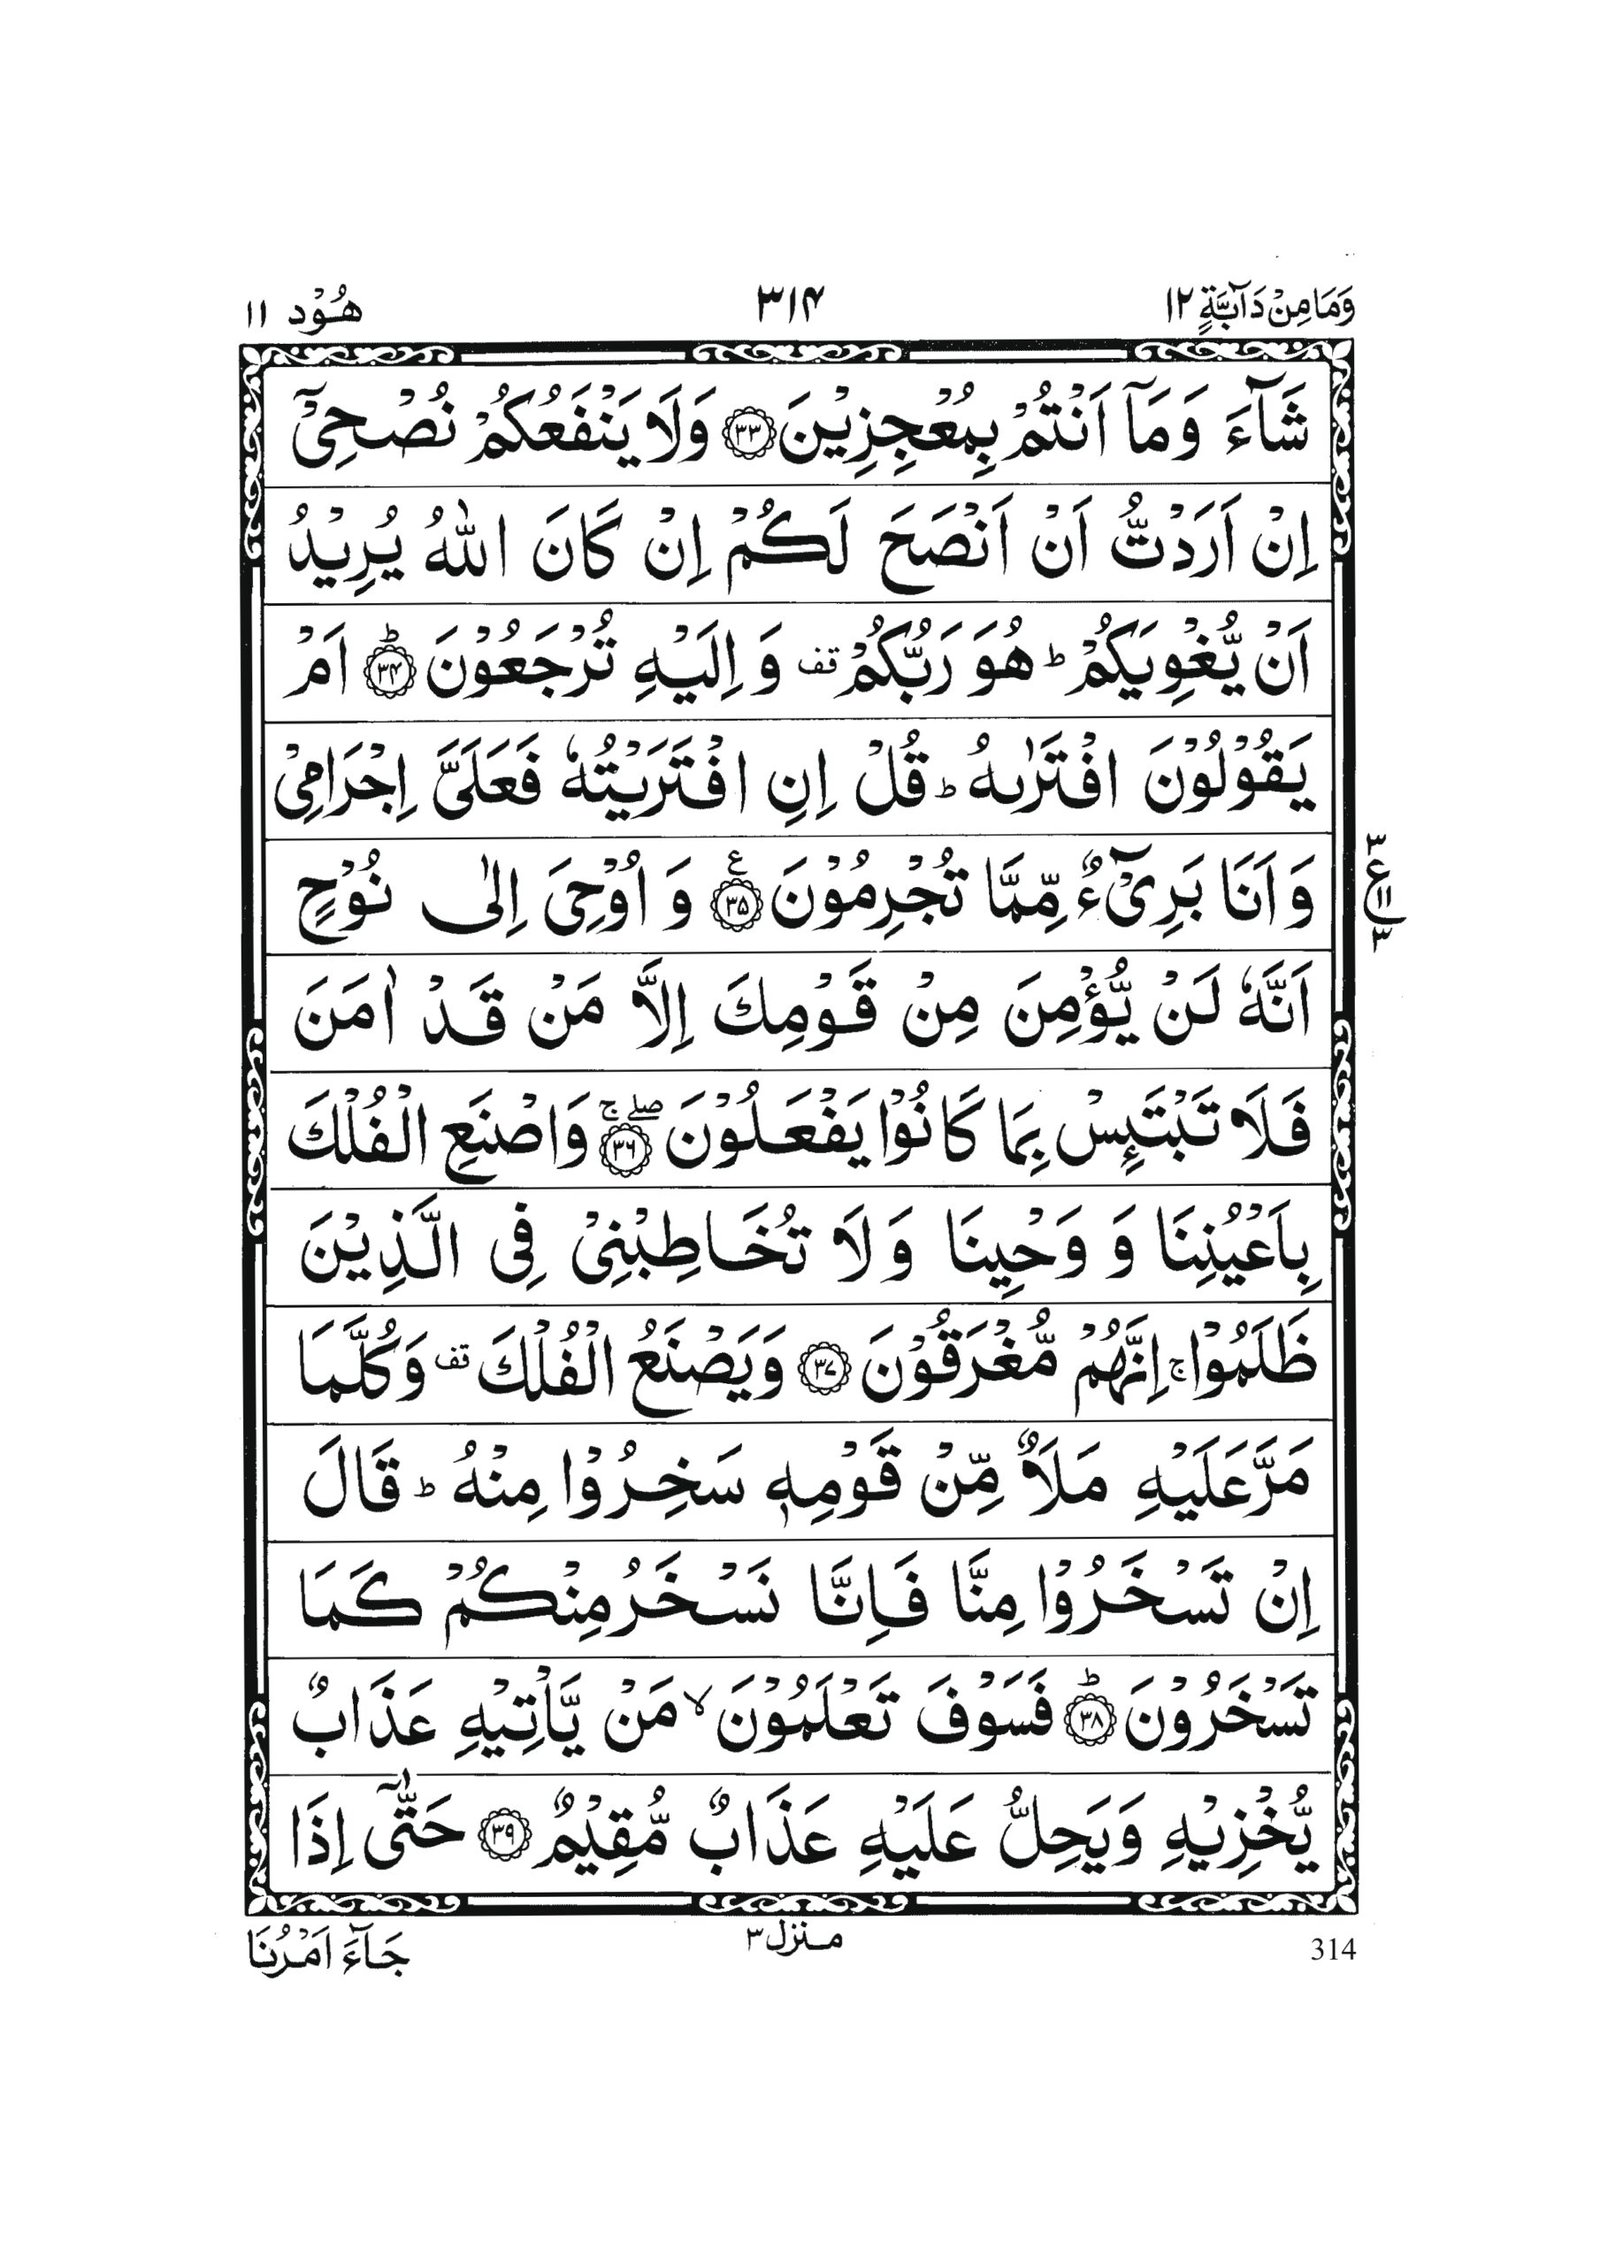 وَمَا مِنْ دَآبَّةٍ ١٢
٣١۴
هُوْد ١١
شَآءَ وَمَآ اَنْتُمْ بِمُعْجِزِيْنَ ۝٣٣ وَلَا يَنْفَعُكُمْ نُصْحِىْٓ
اِنْ اَرَدْتُّ اَنْ اَنْصَحَ لَكُمْ اِنْ كَانَ اللّٰهُ يُرِيْدُ
اَنْ يُّغْوِيَكُمْ ؕ هُوَ رَبُّكُمْ قف وَ اِلَيْهِ تُرْجَعُوْنَ ؕ۝٣۴ اَمْ
يَقُوْلُوْنَ افْتَرٰىهُ ؕ قُلْ اِنِ افْتَرَيْتُهٗ فَعَلَىَّ اِجْرَامِىْ
وَ اَنَا بَرِىْٓءٌ مِّمَّا تُجْرِمُوْنَ ۝٣۵ ع وَ اُوْحِىَ اِلٰى نُوْحٍ
٣ ع ٣
اَنَّهٗ لَنْ يُّؤْمِنَ مِنْ قَوْمِكَ اِلَّا مَنْ قَدْ اٰمَنَ
فَلَا تَبْتَئِسْ بِمَا كَانُوْا يَفْعَلُوْنَ صلے ج ۝٣٦ وَاصْنَعِ الْفُلْكَ
بِاَعْيُنِنَا وَ وَحْيِنَا وَ لَا تُخَاطِبْنِىْ فِى الَّذِيْنَ
ظَلَمُوْا ج اِنَّهُمْ مُّغْرَقُوْنَ ۝٣٧ وَيَصْنَعُ الْفُلْكَ قف وَكُلَّمَا
مَرَّ عَلَيْهِ مَلَاٌ مِّنْ قَوْمِهٖ سَخِرُوْا مِنْهُ ؕ قَالَ
اِنْ تَسْخَرُوْا مِنَّا فَاِنَّا نَسْخَرُ مِنْكُمْ كَمَا
تَسْخَرُوْنَ ؕ۝٣٨ فَسَوْفَ تَعْلَمُوْنَ ۙ مَنْ يَّاْتِيْهِ عَذَابٌ
يُّخْزِيْهِ وَيَحِلُّ عَلَيْهِ عَذَابٌ مُّقِيْمٌ ۝٣٩ حَتّٰىٓ اِذَا
314
منزل ٣
جَآءَ اَمْرُنَا